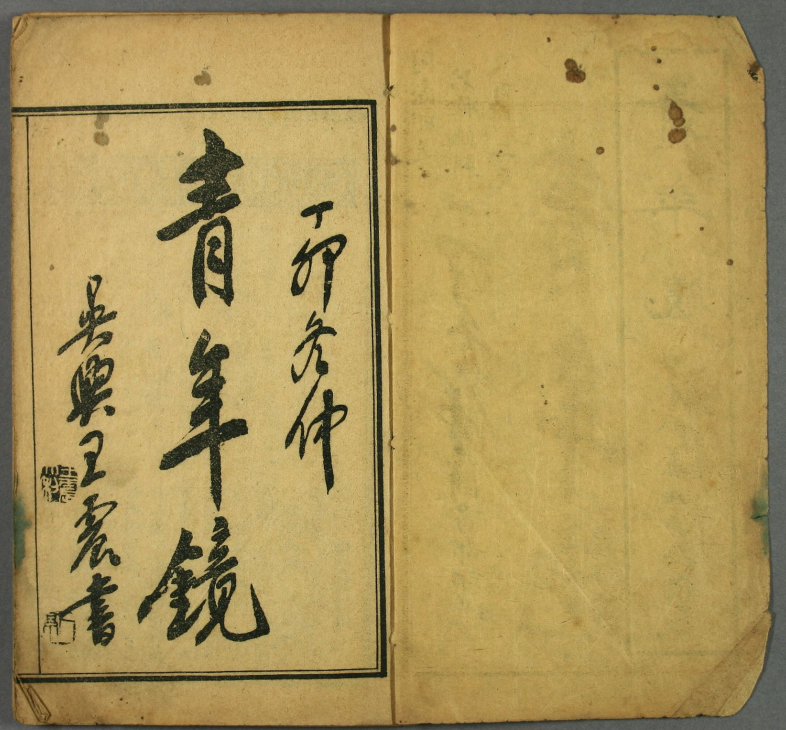 丁卯冬仲
青年鏡
吳興王震書